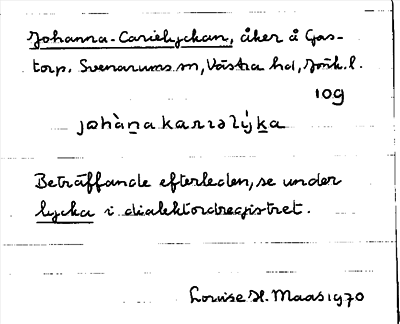 Johanna-Carielyckan, åker å Gas-
torp, Svenarums sn, Västra hd, Jönk. l.
109
Beträffande efterleden, se under
lycka i dialektordregistret.
Louise H. Maas 1970